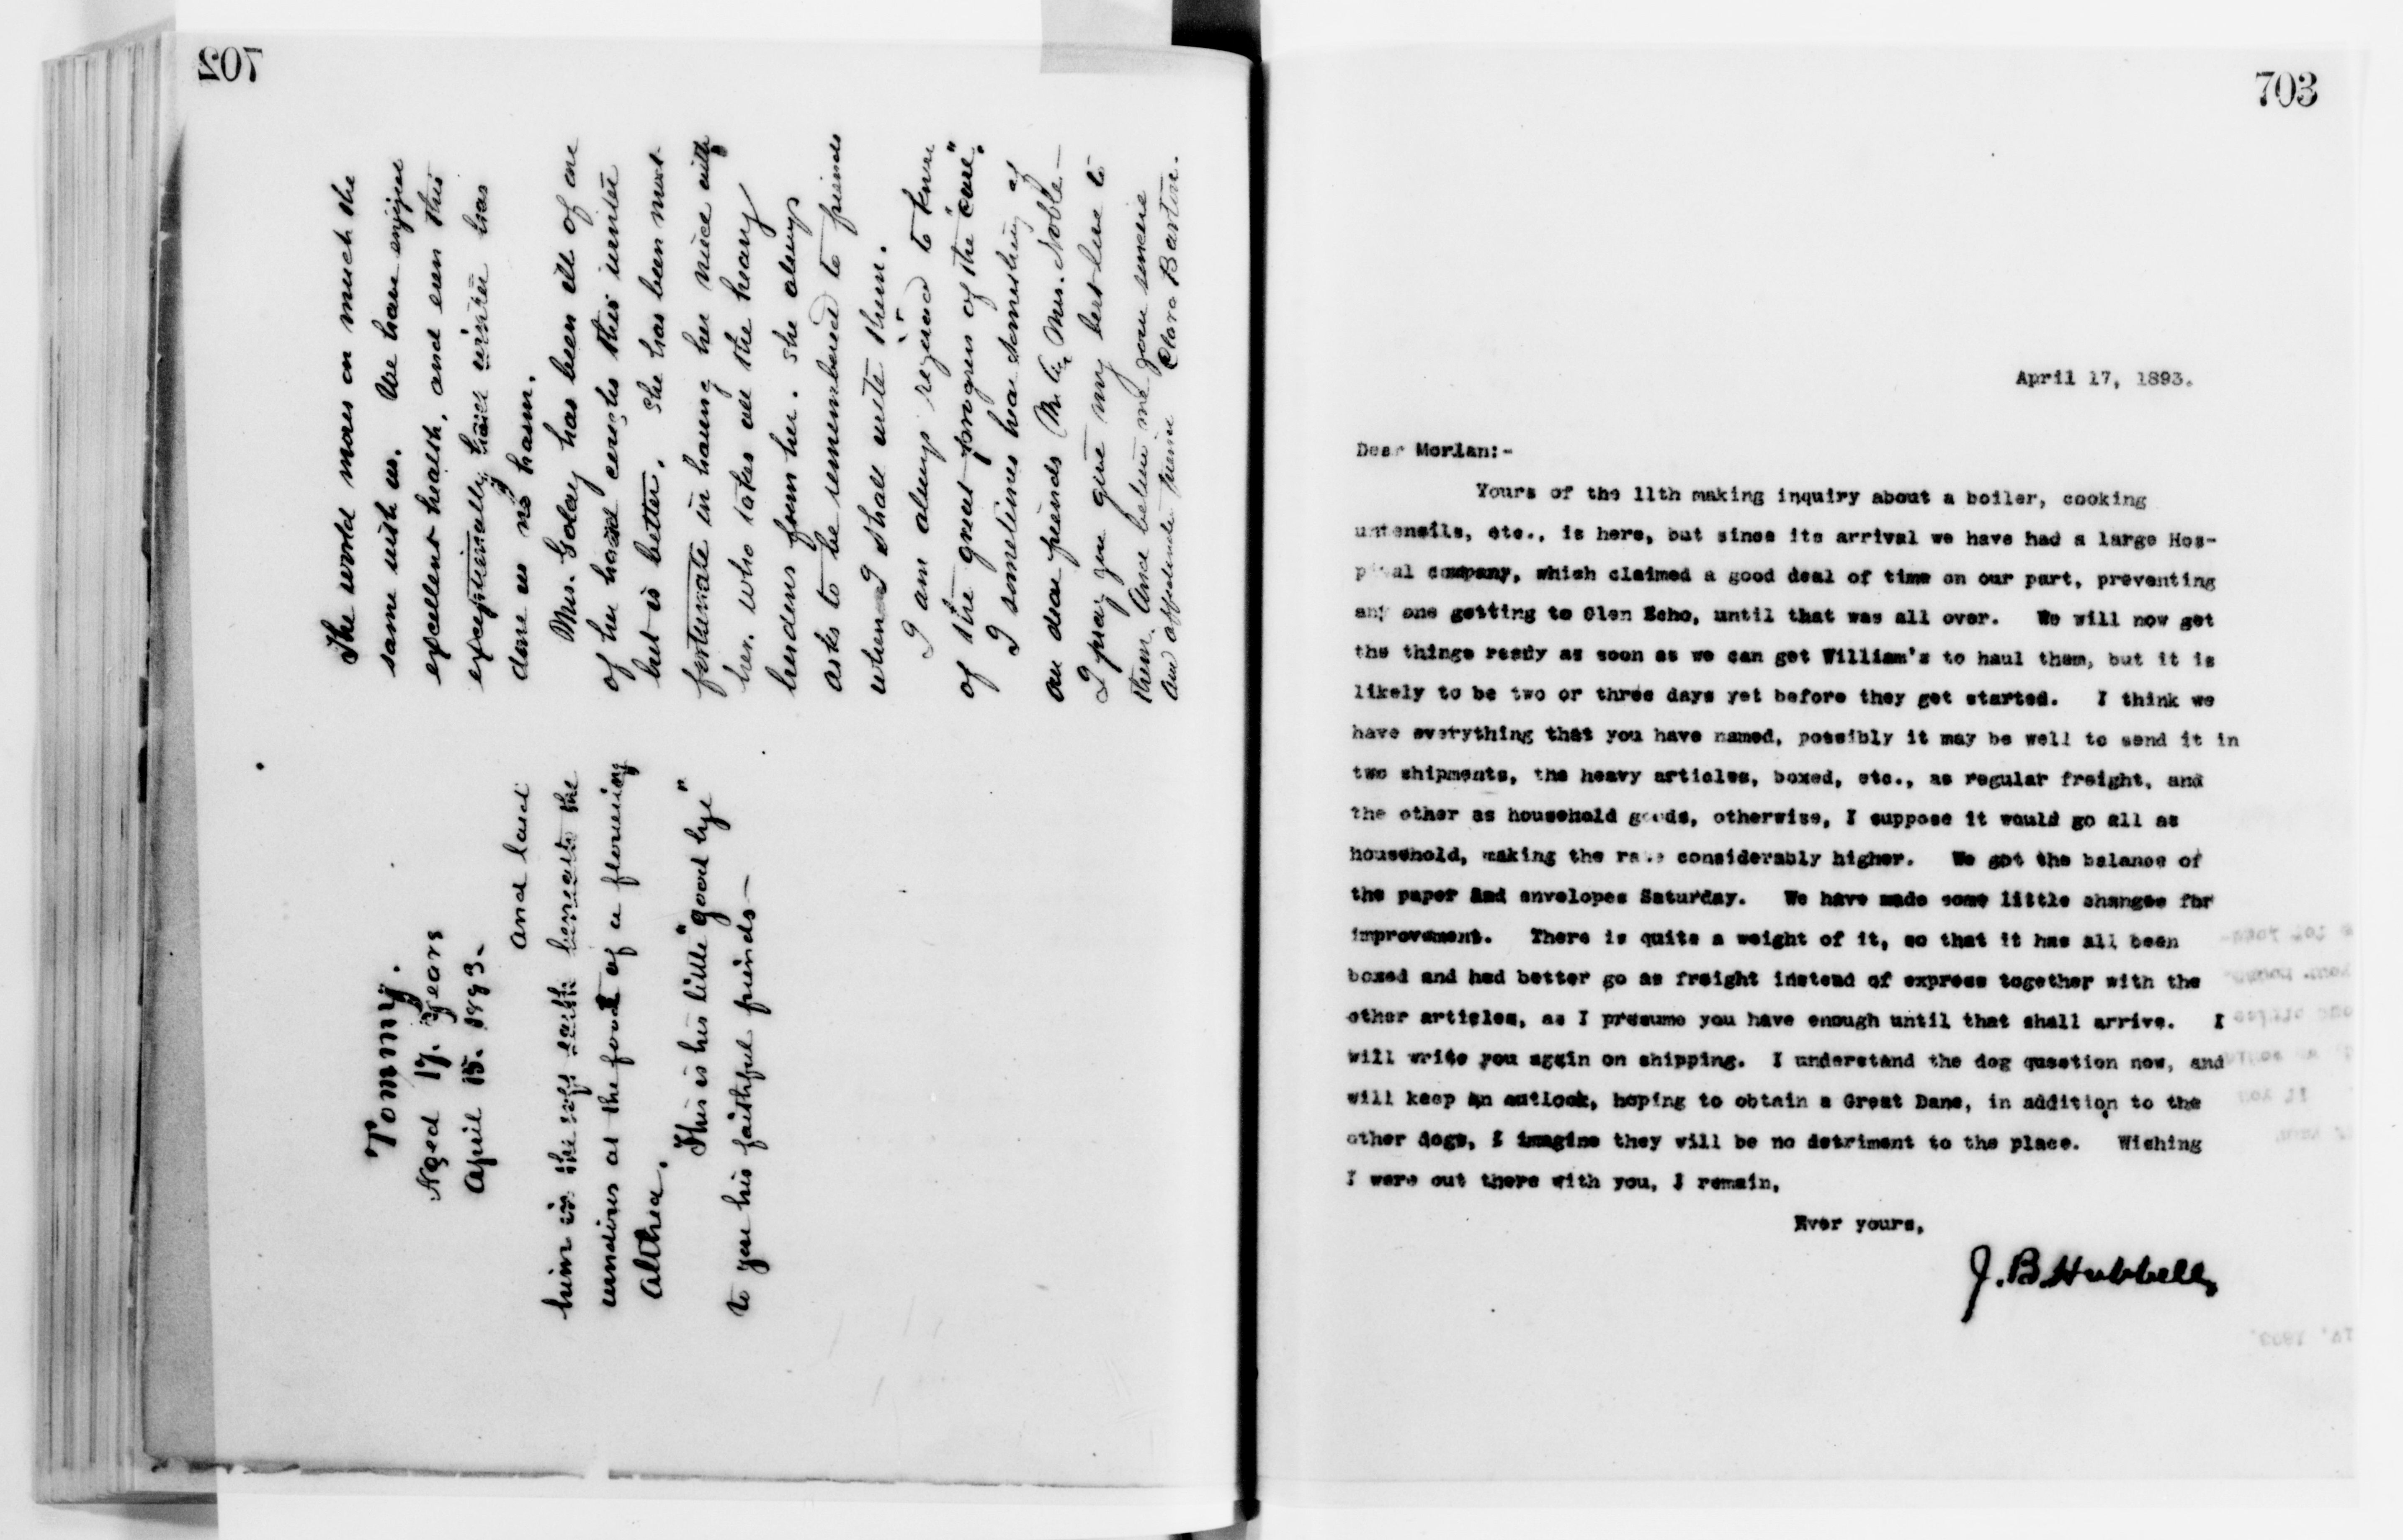 702
Tommy.
Aged 17. years
April 15. 1893.
and laid
him in the soft earth beneath the
windows at the foot of a flowering
Althea.
This is his little "good bye"
to you his faithful friends—
The world moves on much the
same with us. We have enjoyed
excellent health, and even this
exceptionally hard winter has
done us no harm.
Mrs. Golay has been ill of one
of her hard coughs this winter
but is better. She has been most
fortunate in having her niece with
her. who takes all the heavy
burdens from her. She always
asks to be remembered to friends
when I shall write them.
I am always rejoiced to know
of the great progress of the "cure".
I sometimes hear something of
our dear friends Mr. & Mrs. Noble—
I pray you give my best love to
them. And believe me your sincere
and affectionate friend Clara Barton.
703
April 17, 1893.
Dear Morlan:-
Yours of the 11th making inquiry about a boiler, cooking
untensils, etc., is here, but since its arrival we have had a large Hos-
pital company, which claimed a good deal of time on our part, preventing
any one getting to Glen Echo, until that was all over. We will now get
the things ready as soon as we can get William's to haul them, but it is
likely to be two or three days yet before they get started. I think we
have everything that you have named, possibly it may be well to send it in
two shipments, the heavy articles, boxed, etc., as regular freight, and
the other as household goods, otherwise, I suppose it would go all as
household, making the rate considerably higher. We got the balance of
the paper and envelopes Saturday. We have made some little changes for
improvement. There is quite a weight of it, so that it has all been
boxed and had better go as freight instead of express together with the
other articles, as I presume you have enough until that shall arrive. I
will write you again on shipping. I understand the dog question now, and
will keep an outlook, hoping to obtain a Great Dane, in addition to the
other dogs, I imagine they will be no detriment to the place. Wishing
I were out there with you, I remain,
Ever yours,
J. B. Hubbell